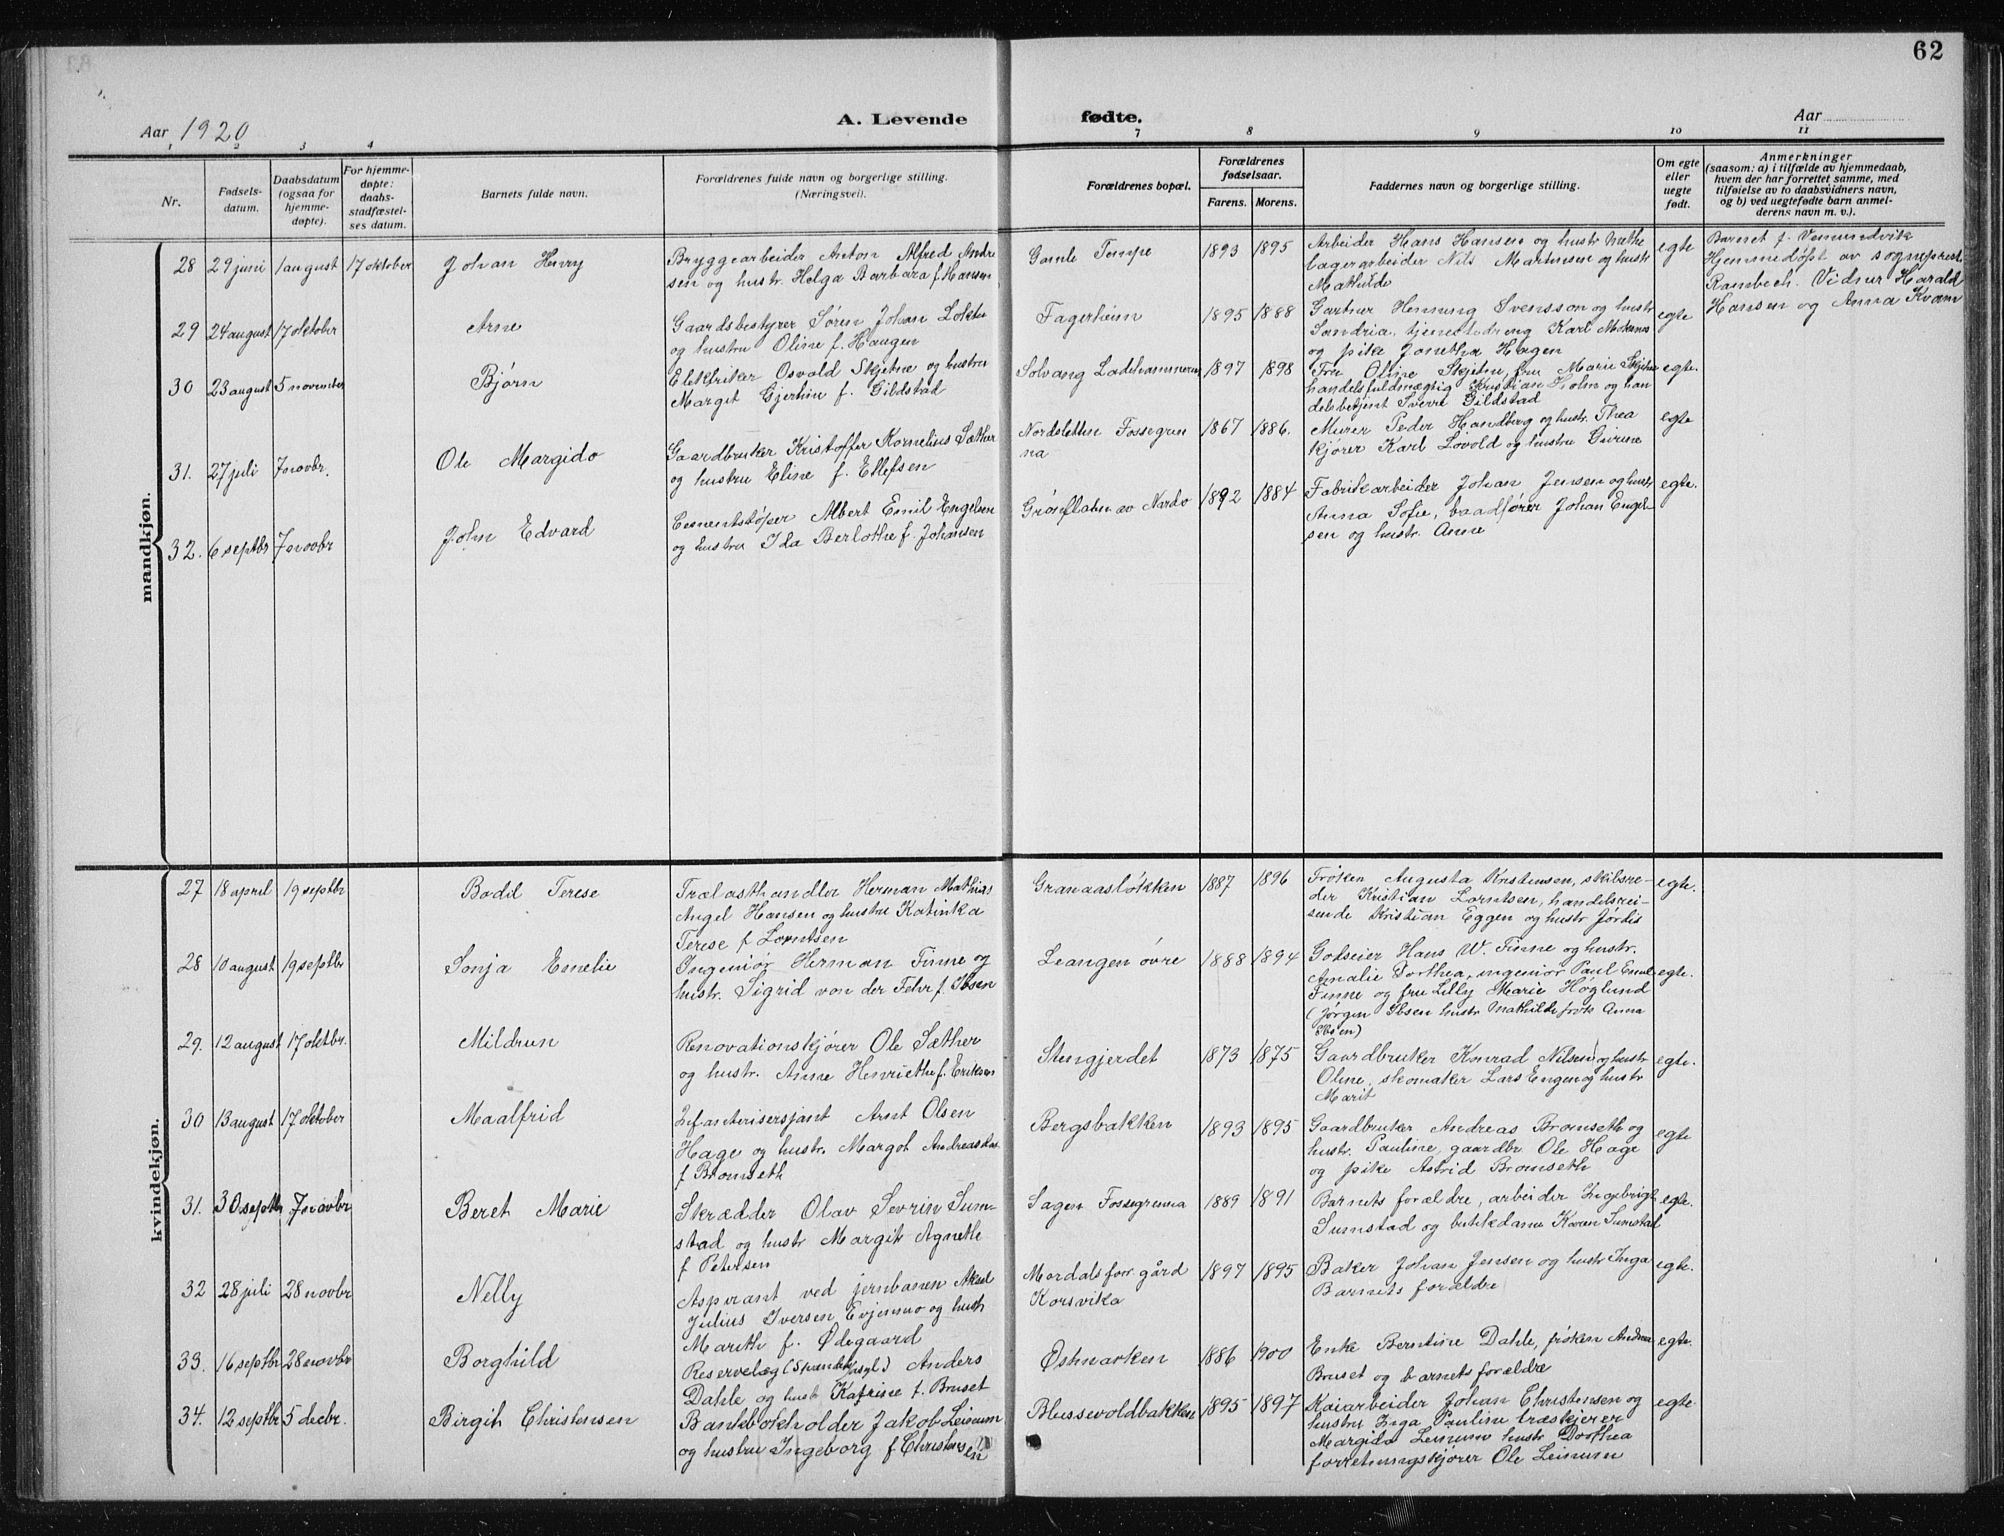 62
Aar 1920
A. Levende fødte.
Aar
1 2 3 4 7 8 9 10 11
Nr.
Fødsels-
datum.
Daabsdatum
(ogsaa for
hjemme-
døpte).
For hjemme-
døpte:
daabs-
stadfæstel-
ses datum.
Barnets fulde navn.
Forældrenes fulde navn og borgerlige stilling.
(Næringsvei).
Forældrenes bopæl.
Forældrenes
fødselsaar.
Farens. Morens.
Faddernes navn og borgerlige stilling.
Om egte
eller
uegte
født.
Anmerkninger
(saasom: a) i tilfælde av hjemmedaab,
hvem der har forrettet samme, med
tilføielse av to daabsvidners navn,
og b) ved uegtefødte barn anmel-
derens navn m. v.).
mandkjøn.
28 29 juni 1 august 17 oktober Johan Henry
Bryggearbeider Anton Alfred Andre
sen og hustr. Helga Barbara f. Hansen
Gamle Tempe 1893 1895
Arbeider Hans Hansen og hustr Methe
lagerarbeider Nils Martinsen og hustr
Mathilde
egte
Barnet f. Vemundvik
Hjemmedøpt av sogneprest
Rambech. Vidner Harald
Hansen og Anna Kvam
29 24 august 17 oktobr Arne
Gaardsbestyrer Søren Johan Lokten
og hustru Oline f. Haugen
Fagerheim 1895 1888
Gartner Henning Svensson og hustr
Sandria, tjenestedreng Karl
og pike Jonetha Hagen
egte
30 23 august 5 november Bjørn
Elektriker Osvald Skjetne og hustru
Margit Gjertine f. Gildstad
Solvang Ladehammeren 1897 1898
Fru Oline Skjetne, fru Marie Skjetne
handelsfuldmægtig Kristian Holm og han
delsbetjent Sverre Gildstad
egte.
31. 27 juli 7 novbr. Ole Margido
Gaardbruker Kristoffer Kornelius Sæther
og hustru Eline f. Ellefsen
Nordsletten Fossegren
na
1867 1886.
Murer Peder Handberg og hustr. Thea
kjører Karl Lovold og hustru Gurine
egte
32. 6 septbr 7 novbr John Edvard
Cementstøper Albert Emil Engelsen
og hustru Ida Berlothe f. Johansen
Grønflaten av Nardo 1892 1884
Fabrikarbeider Johan Jensen og hustr
Anna Sofie, baadfører Johan Engel-
sen og hustr. Anne
egte.
kvindekjøn.
27 18 april 19 septbr Bodil Terese
Trælasthandler Herman Mathias
Angel Hansen og hustru Katinka
Terese f Lorntsen
Granaasløkken 1887 1896
Frøken Augusta Kristensen, skibsre-
der Kristian Lorntsen, handelsrei-
sende Kristian Eggen og hustr Jørdis
egte.
28 10 august 19 septbr Sonja Emelie
Ingeniør Herman Finne og
hustr. Sigrid von der Fehr f. Ibsen
Leangen øvre 1888 1894
Godseier Hans W. Finne og hustr.
Amalie Dorthea, ingeniør Paul Emil
Finne og fru Lilly Marie Høglund
(Jørgen Ibsen hustr Mathilde frøk Anna
Ibsen)
egte.
29. 12 august 17 oktbr. Mildrun
Renovationskjører Ole Sæther
og hustr. Anne Henriethe f. Eriksen
Stengjerdet 1873 1875
Gaardbruker Konrad Nilsen og hustr
Oline, skomaker Lars Engen og hustr
Marit
egte.
30 13 august 17 oktober Maalfrid
Infanterisersjant Arnt Olsen
Hage og hustr. Margot Andreasdat
f Bromseth
Bergsbakken 1893 1895
Gaardbruker Andreas Bromseth og
hustr. Pauline, gaardbr. Ole Hage
og pike Astrid Bromseth
egte
31. 30 septbr 7 novbr Beret Marie
Skrædder Olav Sevrin Sum-
stad og hustr Margit Agnethe
f Petersen
Sagen Fossegrenna 1889 1891
Barnets forældre, arbeider Ingebrigt
Sumstad og butikdame Karen Sumstad
egte.
32 28 juli 28 novbr Nelly
Aspirant ved jernbanen Aksel
Julius Iversen Evjenmo og hustr
Marith f. Ødegaard
Mordals for gård
Korsvika
1897 1895
Baker Johan Jensen og hustr Inga
Barnets forældre
egte.
33. 16 septbr 28 novbr Borghild
Reservelæg Anders
Dahle og hustr Katrine f. Bruset
Østmarken 1886 1900
Enke Berntine Dahle, frøken Andrea
Bruset og barnets forældre
egte.
34. 12 septbr 5 decbr. Birgit Christensen
Bankbokholder Jakob Leinum
og hustru Ingeborg f Christensen
Blussevoldbakken 1895 1897
Kaiarbeider Johan Christensen og
hustru Inga Pauline træskjerer
Margido Leinum hustr Dorthea
forretningskjører Ole Leinum
egte